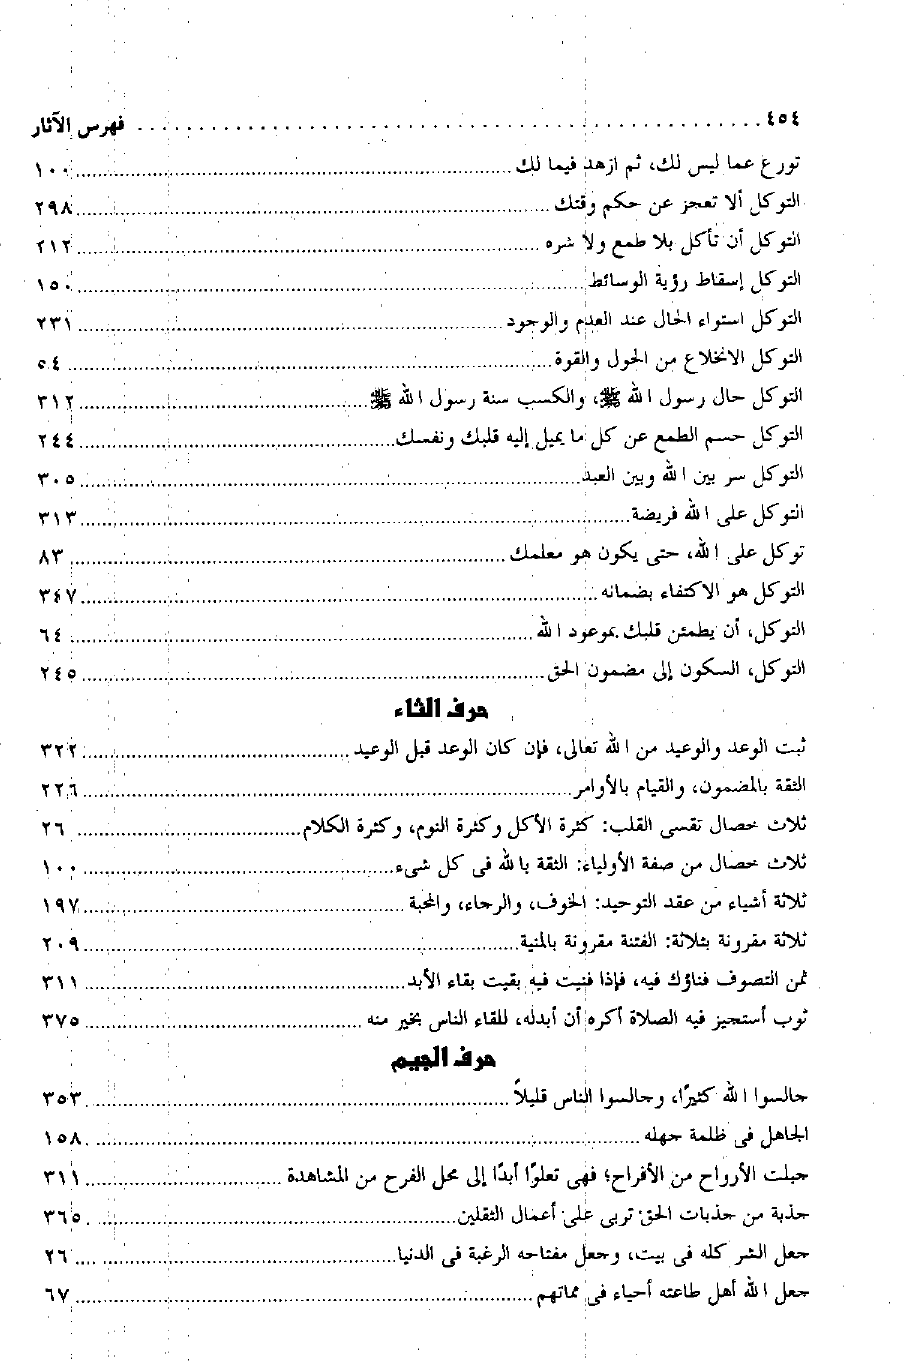 ٤٥٤ ........ فهرس الآثار
تورع عما ليس لك، ثم ازهد فيما لك ........ ١٠٠
التوكل ألا تعجز عن حكم وقتك ........ ٢٩٨
التوكل أن تأكل بلا طمع ولا شره ........ ٢١٢
التوكل إسقاط رؤية الوسائط ........ ١٥٠
التوكل استواء الحال عند العدم والوجود ........ ٢٣١
التوكل الانخلاع من الحول والقوة ........ ٥٤
التوكل حال رسول الله ﷺ، والكسب سنة رسول الله ﷺ ........ ٣١٢
التوكل حسم الطمع عن كل ما يميل إليه قلبك ونفسك ........ ٢٤٤
التوكل سر بين الله وبين العبد ........ ٣٠٥
التوكل على الله فريضة ........ ٣١٣
توكل على الله، حتى يكون هو معلمك ........ ٨٣
التوكل هو الاكتفاء بضمانه ........ ٣٤٧
التوكل، أن يطمئن قلبك بموعود الله ........ ٦٤
التوكل، السكون إلى مضمون الحق ........ ٢٤٥
حرف الثاء
ثبت الوعد والوعيد من الله تعالى، فإن كان الوعد قبل الوعيد ........ ٣٢٢
الثقة بالمضمون، والقيام بالأوامر ........ ٢٢٦
ثلاث خصال تقسى القلب: كثرة الأكل وكثرة النوم، وكثرة الكلام ........ ٢٦
ثلاث خصال من صفة الأولياء: الثقة بالله فى كل شىء ........ ١٠٠
ثلاثة أشياء من عقد التوحيد: الخوف، والرجاء، والمحبة ........ ١٩٧
ثلاثة مقرونة بثلاثة: الفتنة مقرونة بالمنية ........ ٢٠٩
ثمن التصوف فناؤك فيه، فإذا فنيت فيه بقيت بقاء الأبد ........ ٣١١
ثوب أستجيز فيه الصلاة أكره أن أبدله، للقاء الناس بخير منه ........ ٣٧٥
حرف الجيم
جالسوا الله كثيرًا، وجالسوا الناس قليلاً ........ ٣٥٣
الجاهل فى ظلمة جهله ........ ١٥٨
جبلت الأرواح من الأفراح؛ فهى تعلوًا أبدًا إلى محل الفرح من المشاهدة ........ ٣١١
جذبة من جذبات الحق تربى على أعمال الثقلين ........ ٣٦٥
جعل الشر كله فى بيت، وجعل مفتاحه الرغبة فى الدنيا ........ ٢٦
جعل الله أهل طاعته أحياء فى مماتهم ........ ٦٧